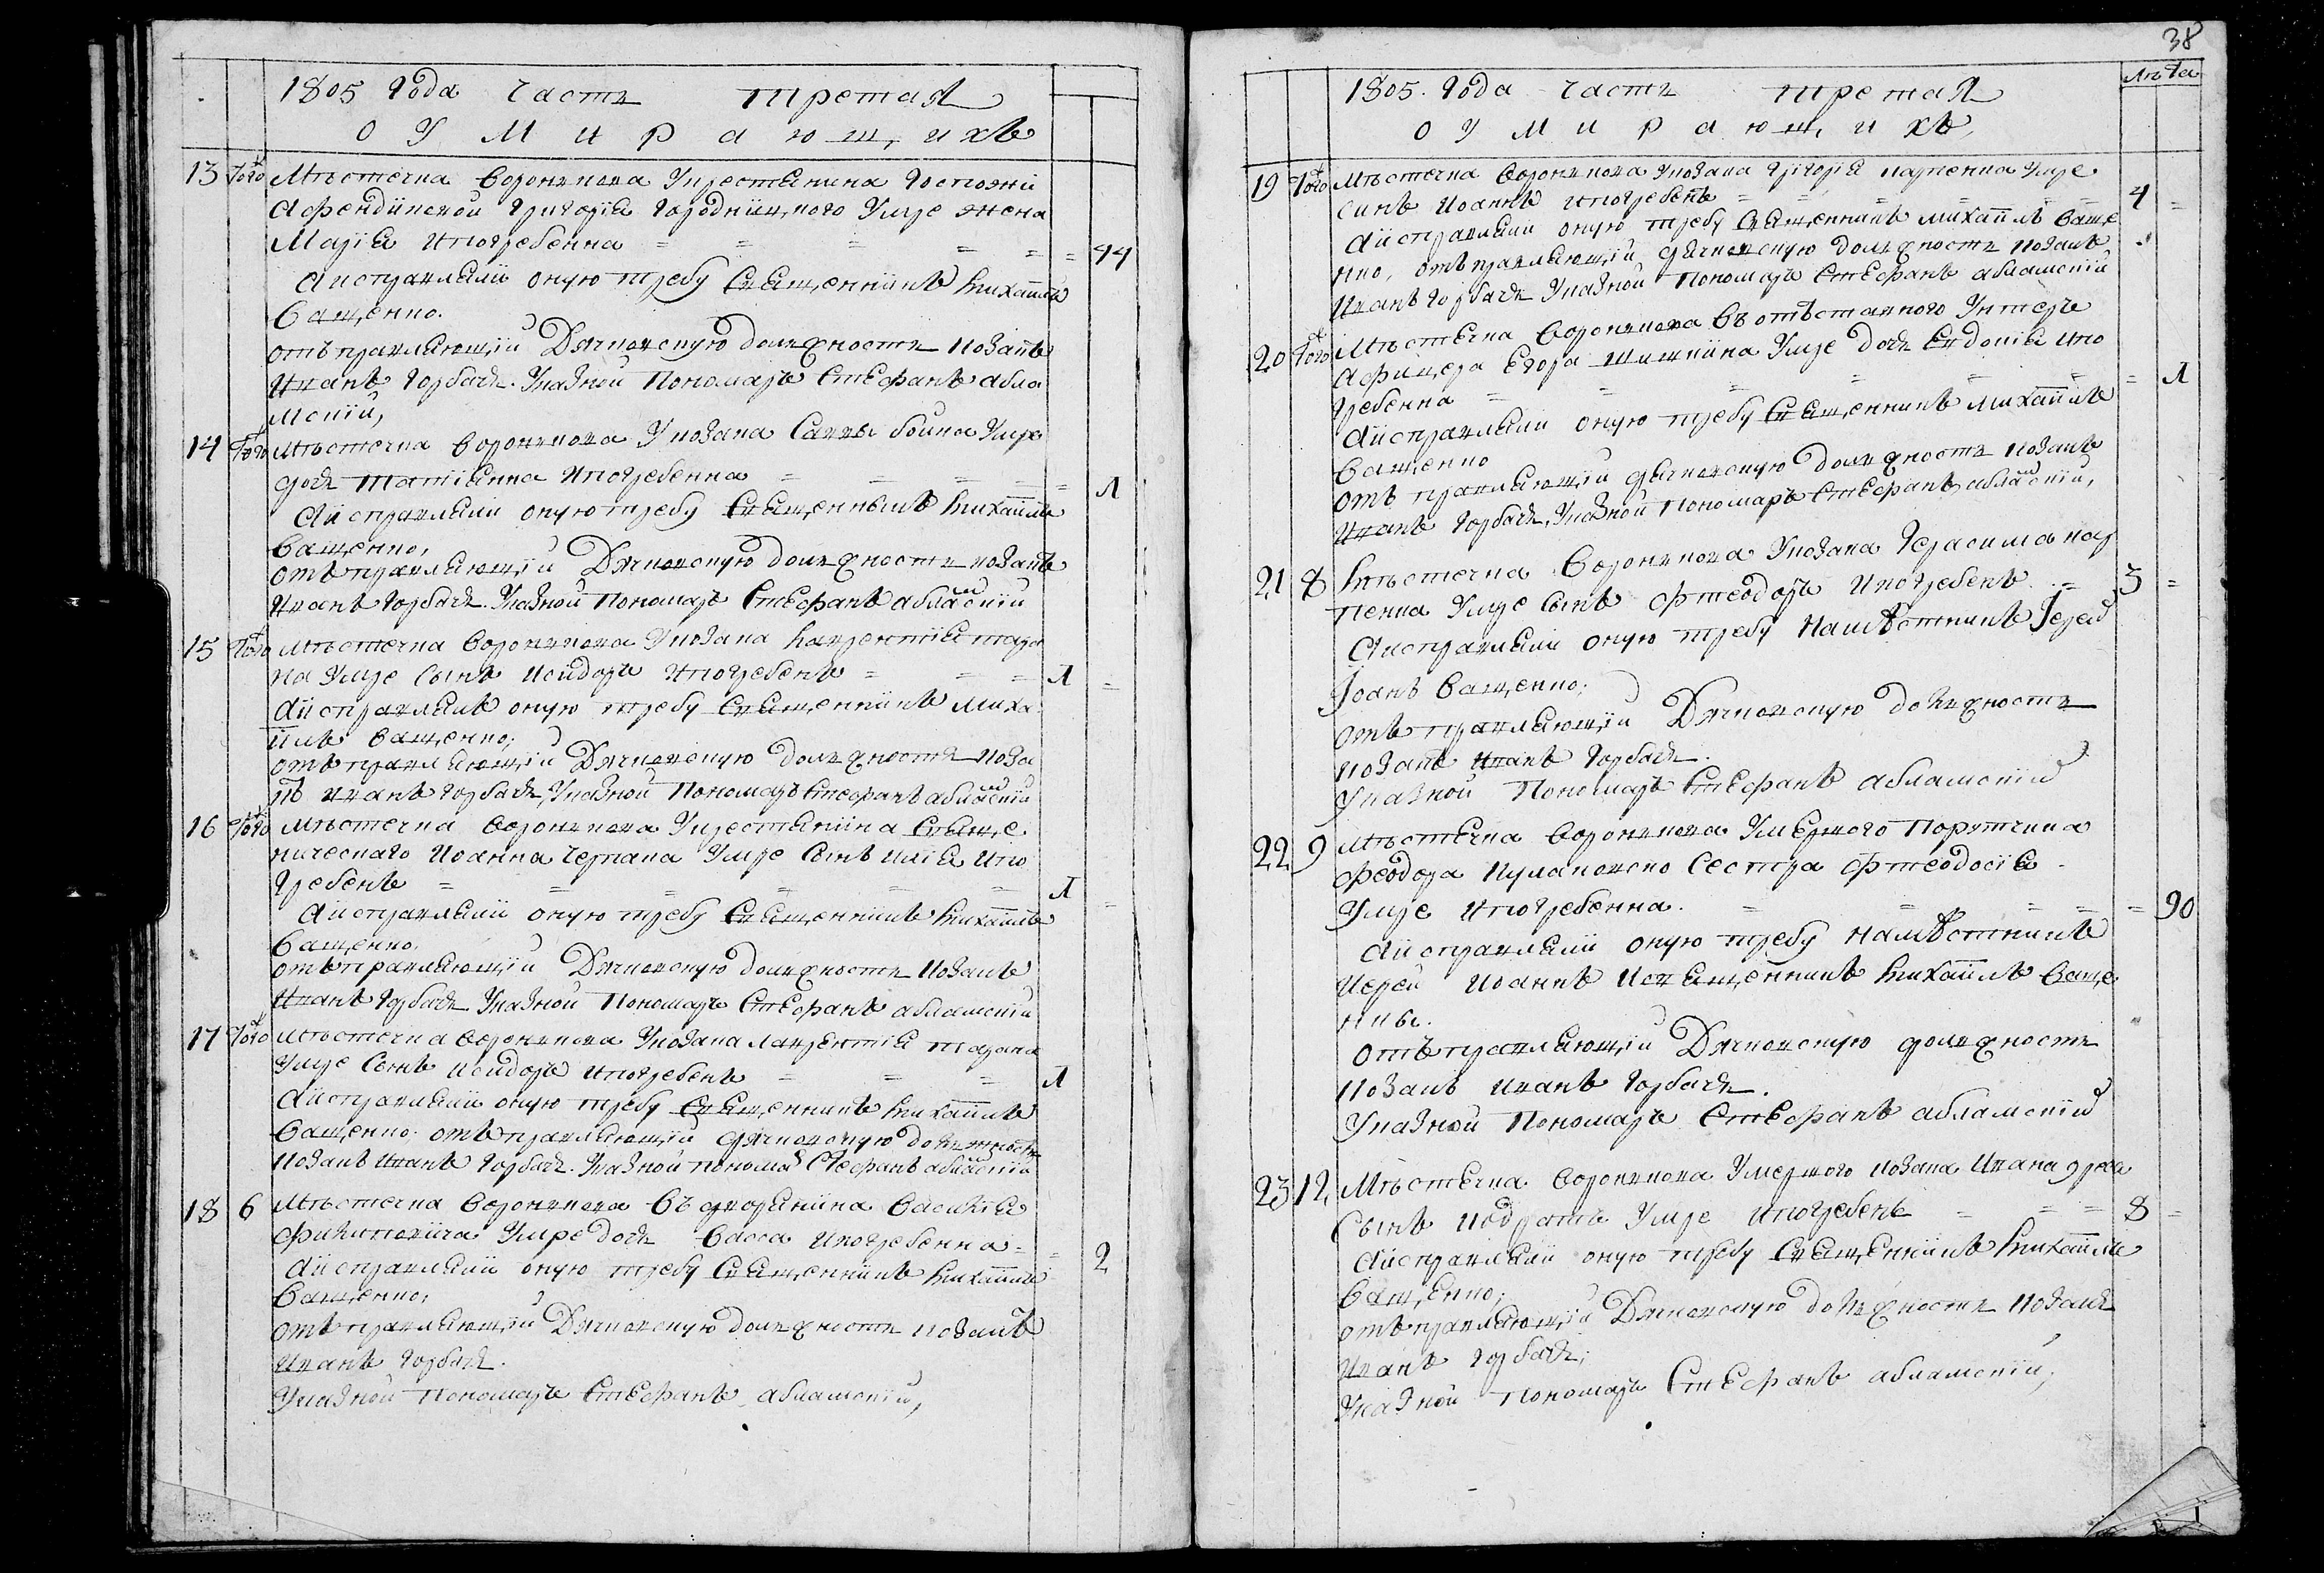 1805 Года Часть третая
О У М И Р А Ю Щ И ХЪ
13 Того Местечка Воронкова Укрестянина Госпожи
Афендикской Григорія Городниц,кого Умре жена
Марія Ипогребенна = = = = = = 44
Аисправляли оную требу Священникъ Михаилъ
Ващенко.
отъправляющій Дячковскую должность козакъ
Иванъ Горбачь. Указной Пономарь Стефанъ абла
мскій,
14 Того Местечка Воронкова Укозака Саввы бойка Умре
дочь Татіянна Ипогребенна = = = = = 1
Аисправляли оную требу Священникъ Михаилъ
Ващенко,
отъправляющій Дячковскую должность козакъ
Иванъ Горбачь. Указной Пономарь Стефанъ абламскій
15 Того Местечка Воронкова Укозака Лаврентія тара
на Умре Сынъ Исидоръ Ипогребенъ = = = 1 =
Аисправлялъ оную требу Священникъ Миха
илъ Ващенко;
отъправляющій Дячковскую должность коза
къ Иванъ Горбачь, Указной Пономарь Стефанъ абламскій
16 Того Местечка Воронкова Укрестянина Священ
ническаго Иоанна Чепака Умре Сынъ Илія Ипо
гребенъ = = = = = = 1 =
Аисправляли оную требу Священникъ Михаилъ
Ващенко.
отъправляющій Дячковскую должность козакъ
Иванъ Горбачь. Указной Пономарь Стефанъ абламскій
17 Того Местечка Воронкова Укозака Лаврентія тарана
Умре Сынъ Исидоръ Ипогребенъ = = = 1
Аисправляли оную требу Священникъ Михаилъ
Ващенко. отъправляющій дячковскую должность
козакъ Иванъ Горбачь. Указной пономар Стефанъ абламскій
18 6 Местечка Воронкова Въ дворянина Василія
Филиповича Умре дочь Васса Ипогребенна = = 2
Аисправляли оную требу Священникъ Михаилъ
Ващенко;
отъправляющій Дячковскую должность козакъ
Иванъ Горбачь.
Указной Пономарь Стефанъ абламскій,
38
Лета
1805. Года Часть третая
О У М И Р А Ю Щ И ХЪ
19 Того Местечка Воронкова Укозака Григорія карпенка Умре
синъ Иоаннъ Ипогребенъ = = = = = 4 =
Аисправляли оную требу Священникъ Михаилъ Ваще
нко, отъправляющій дячковскую должность козакъ
Иванъ Горбачь Указной Пономарь Стефанъ абламскій
20 Того Местечка Воронкова Въ отъставного Унтеръ
Афицера Егора Шишкина Умре дочь Евдокія Ипо
гребенна = = = = = = = 1
Аисправляли оную требу Священникъ Михаилъ
Ващенко
отъ правляющій дячковскую должность козакъ
Иванъ Горбачь, Указной Пономарь Стефанъ абламскій,
21 8 Местечка Воронкова Укозака Герасима кар
пенка Умре Сынъ Фтеодоръ Ипогребенъ = 3 =
Аисправляли оную требу Наместникъ Іерей
Іоанъ Ващенко;
отъ правляющій Дячковскую должность
козакъ Иванъ Горбачь.
Указной Пономарь Стефанъ абламскій
22 9 Местечка Воронкова Умершого Порутчика
Феодора Сестра Фтеодосія
Умре Ипогребенна. = = = = = 90
Аисправляли оную требу Наместникъ
Иерей Иоаннъ Исвященникъ Михаилъ Ваще
нки.
отъправляющій Дячковскую должность
козакъ Иванъ Горбачь.
Указной Пономарь Стефанъ абламскій
23 12, Местечка Воронкова Умершого козака Ивана
Сынъ Кодратъ Умре Ипогребенъ = = = 8 =
Аисправляли оную требу Священникъ Михаилъ
Ващенко;
отъправляющій Дячковскую должность козакъ
Иванъ Горбачь;
Указной Пономарь Стефанъ абламскій,